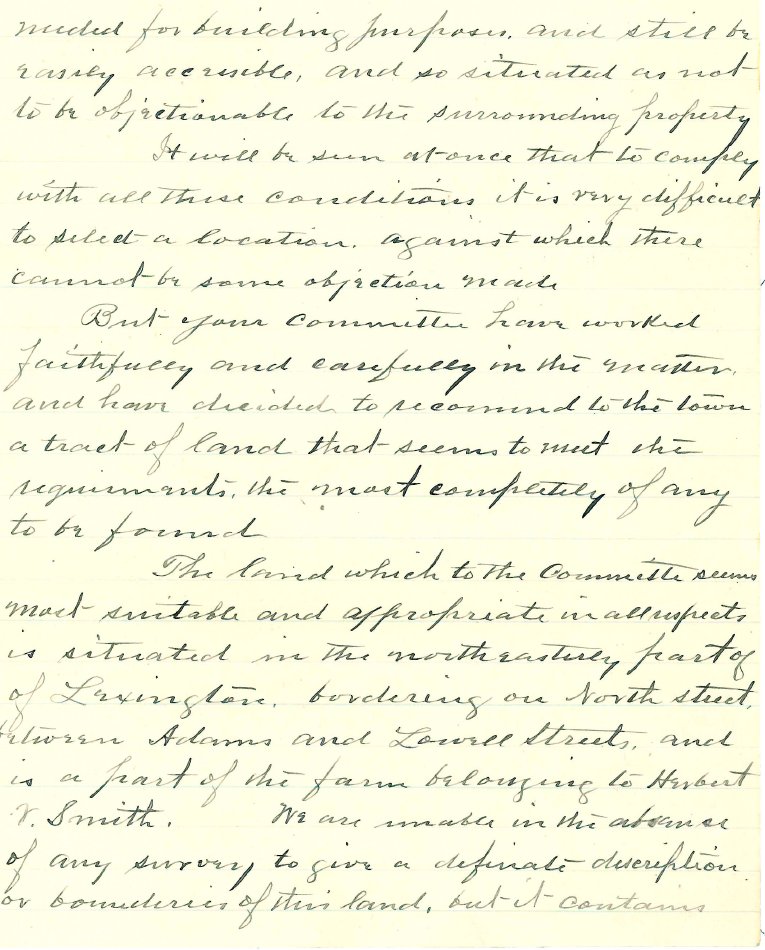 needed for building purposes, and still be
easily accessible, and so situated as not
to be objectionable to the surrounding property
It will be seen at once that to comply
with all these conditions it is very difficult
to select a location, against which there
cannot be some objection made
But your committee have worked
faithfully and carefully in the matter,
and have decided to recommend to the town
a tract of land that seems to meet the
requirments, the most completely of any
to be found
The land which to the Committe seems
most suitable and appropriate in all respects
is situated in the northeasterly part of
of Lexington, bordering on North street,
between Adams and Lowell Streets, and
is a part of the farm belonging to Herbert
V. Smith. We are unable in the absence
of any survey to give a definate discription
or bounderies of this land, but it contains